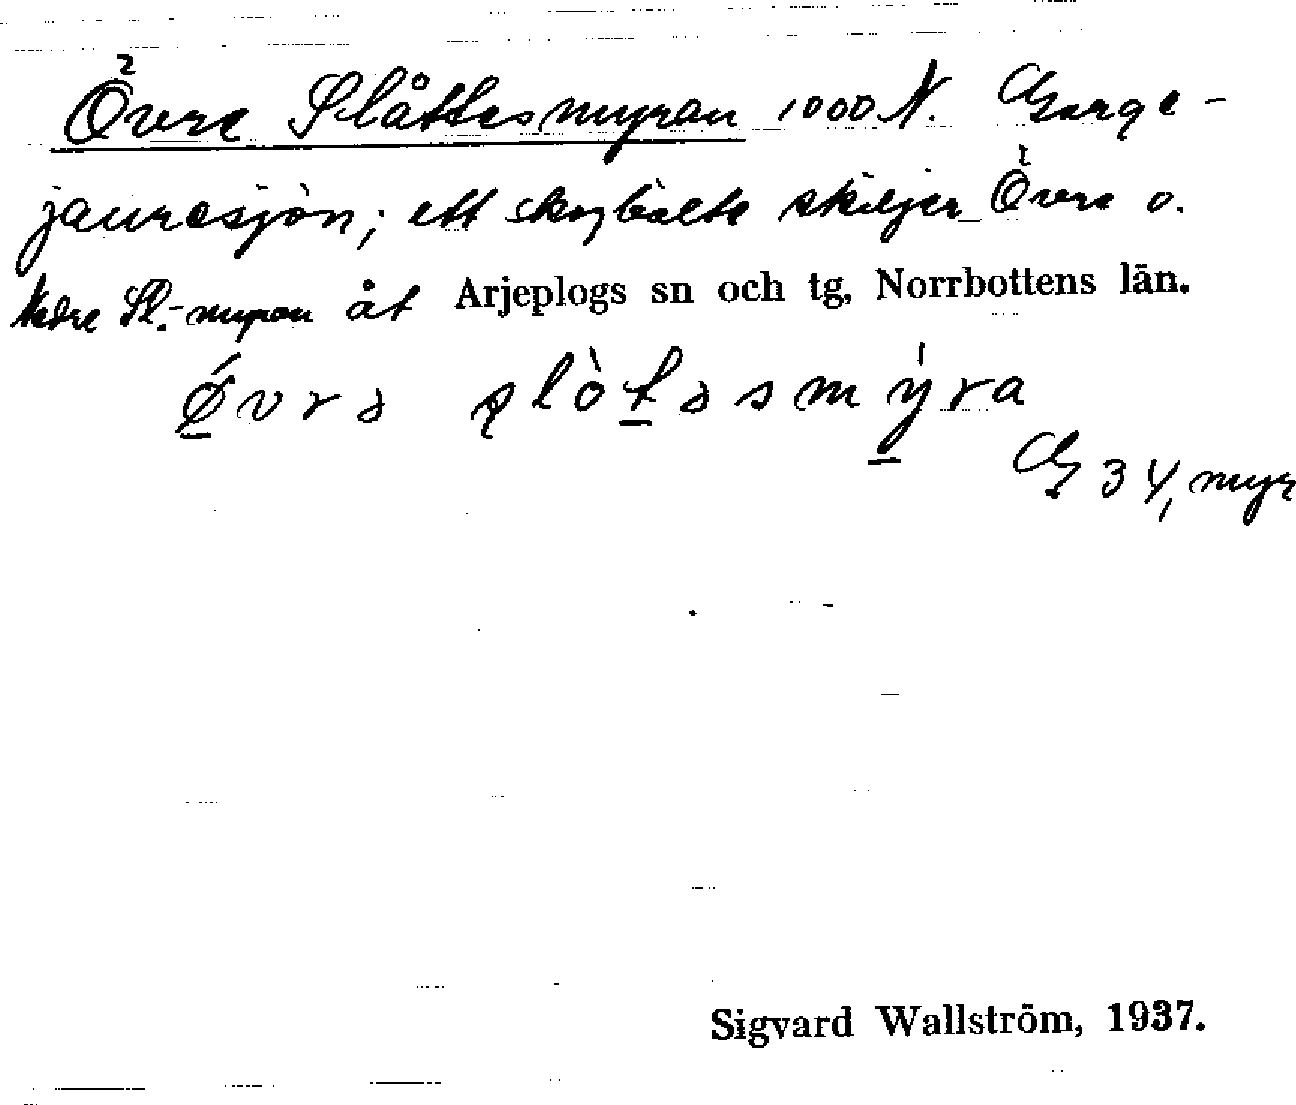 Övre Slåttesmyran 1000 N. Garge-
jauresjön; ett skogbälte skiljer Övre o.
Nedre Sl.-myran åt Arjeplogs sn och tg, Norrbottens län.
G 34, myr
Sigvard Wallström, 1937.